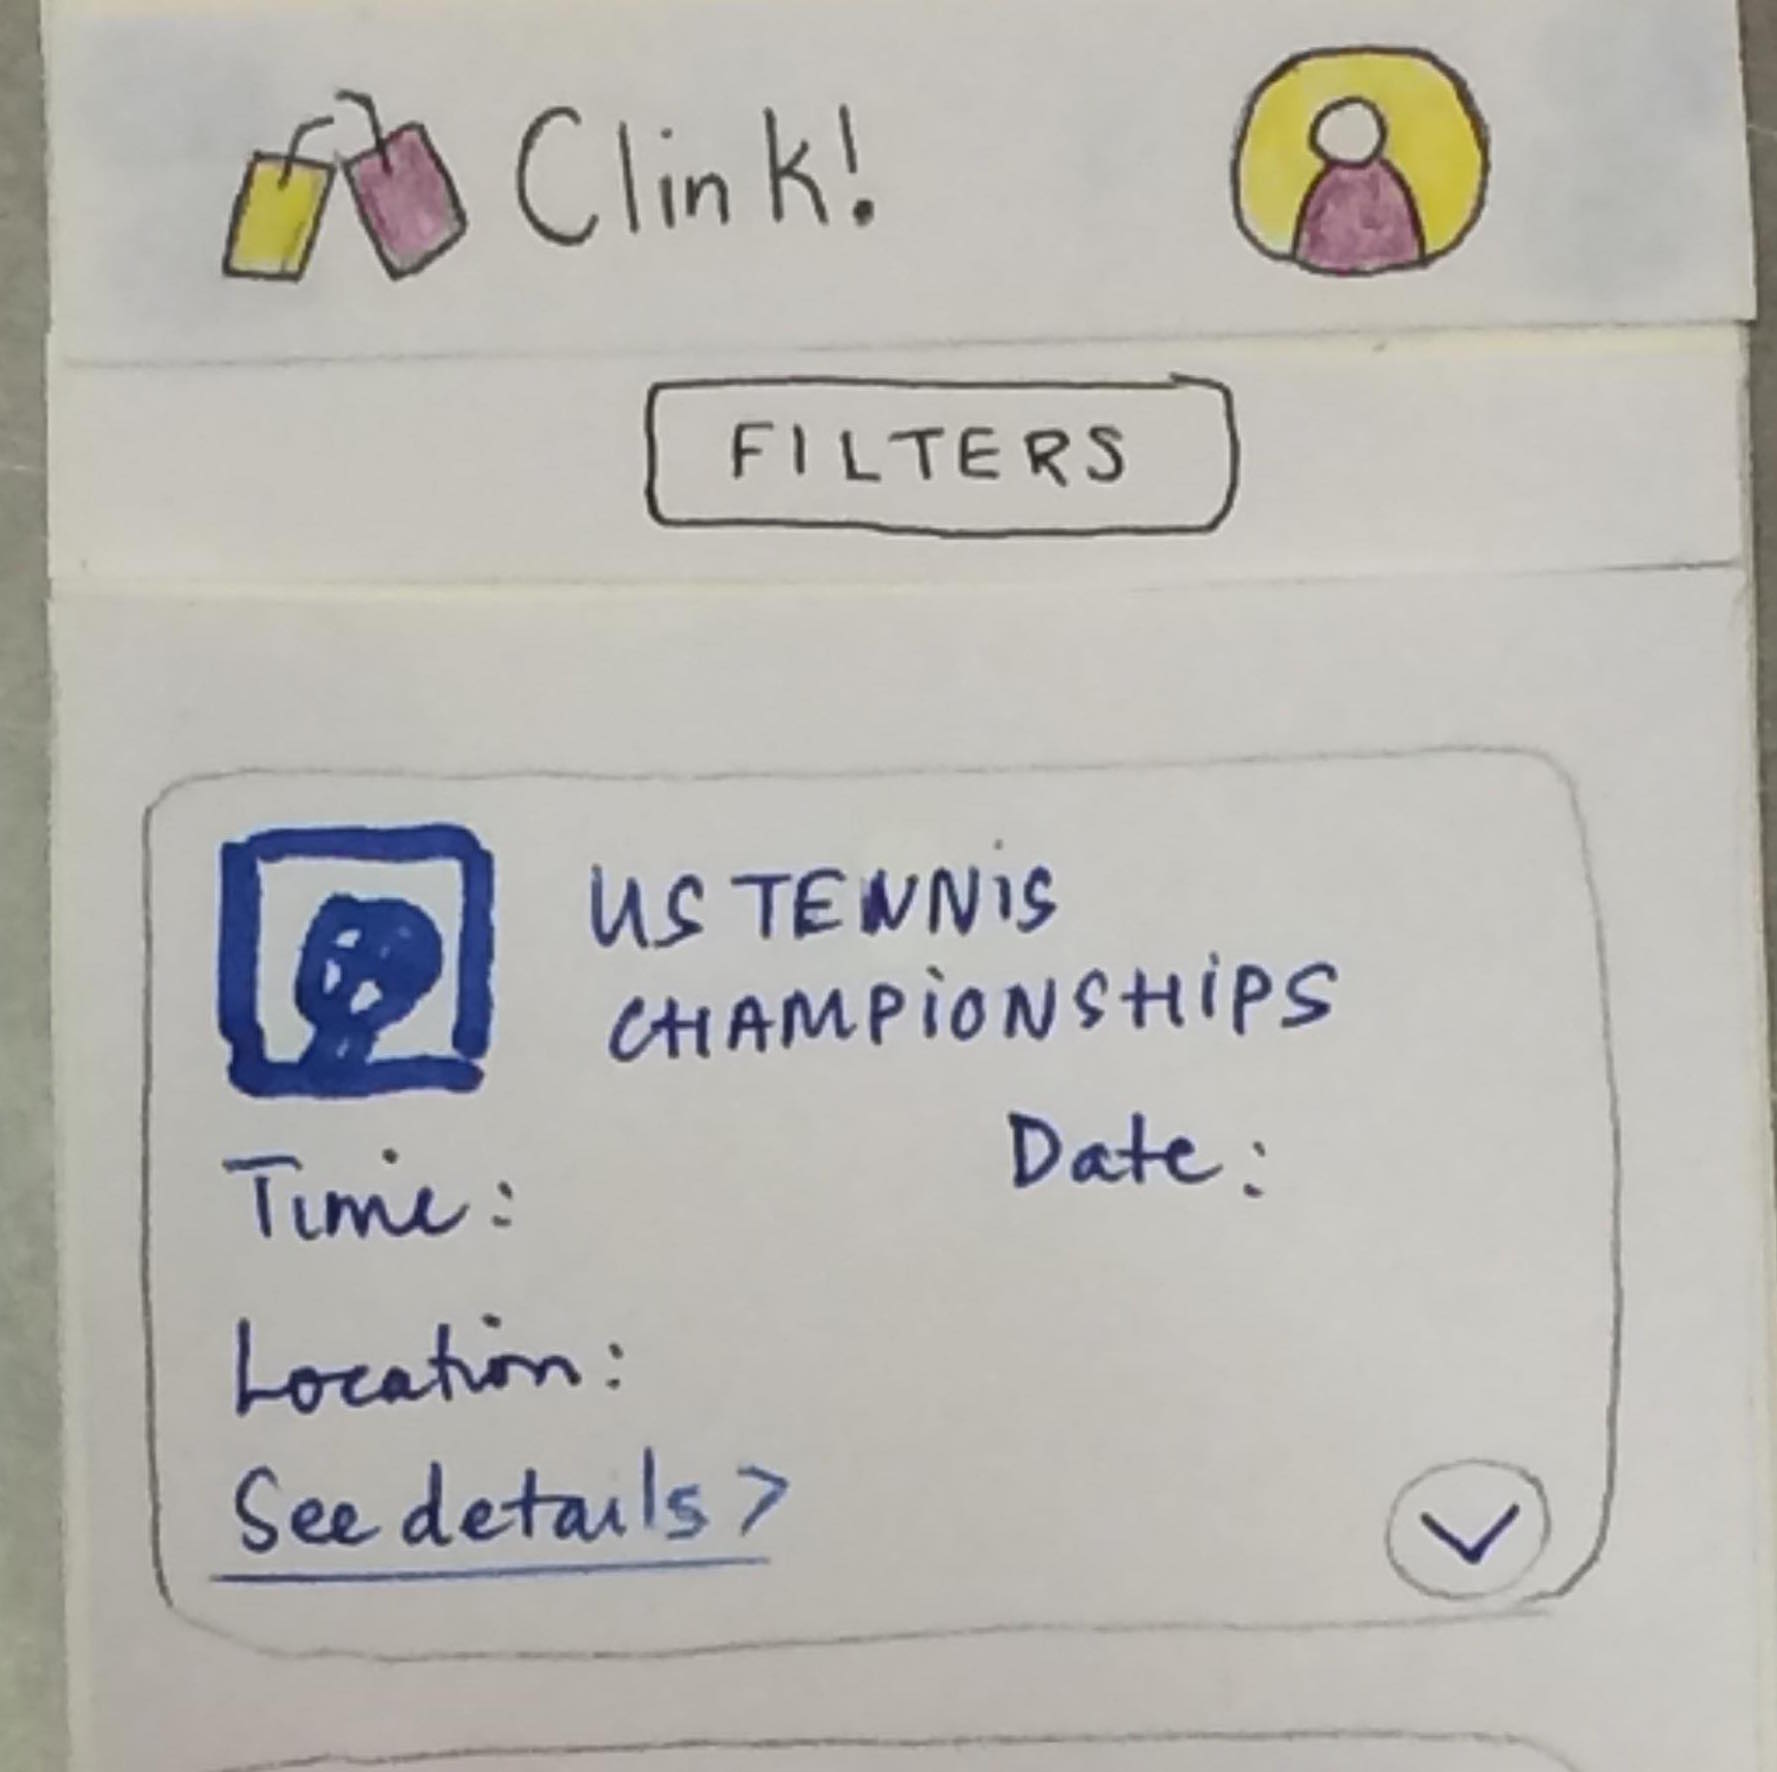 Clink!
FILTERS
US TENNIS
CHAMPIONSHIPS
Time: Date:
Location:
See details >